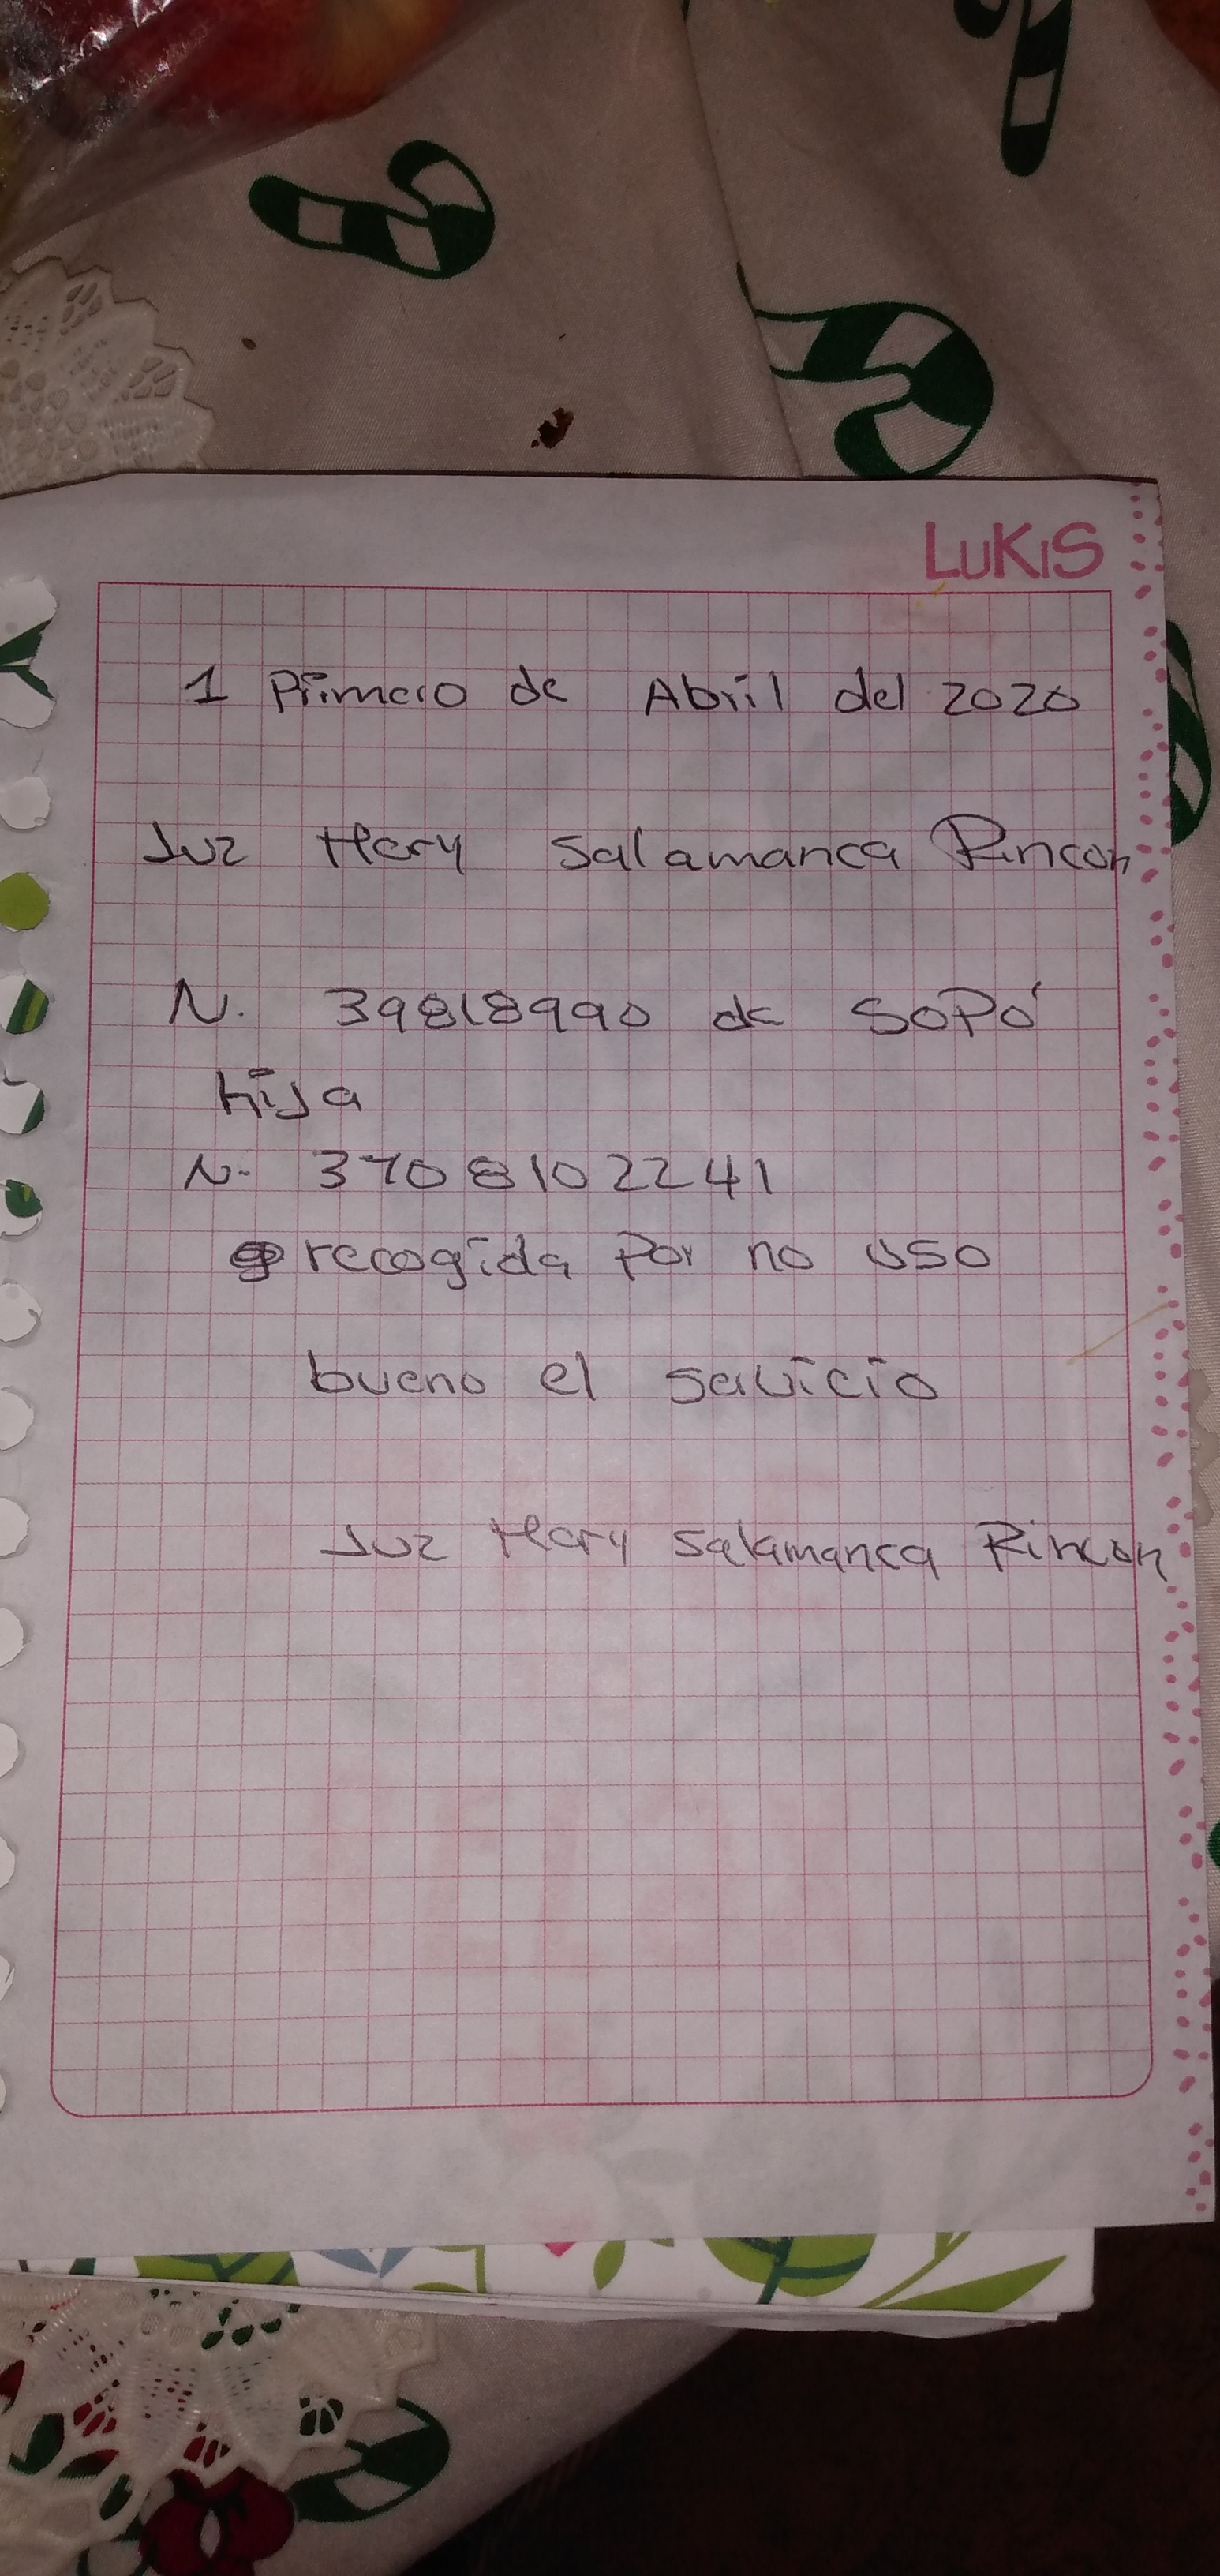 LUKIS
1 Primero de Abril del 2020
Luz Mery Salamanca Rincon
N. 39818990 de SOPÓ
hija
N. 3708102241
recogida Por no uso
bueno el servicio
Luz Mery Salamanca Rincon